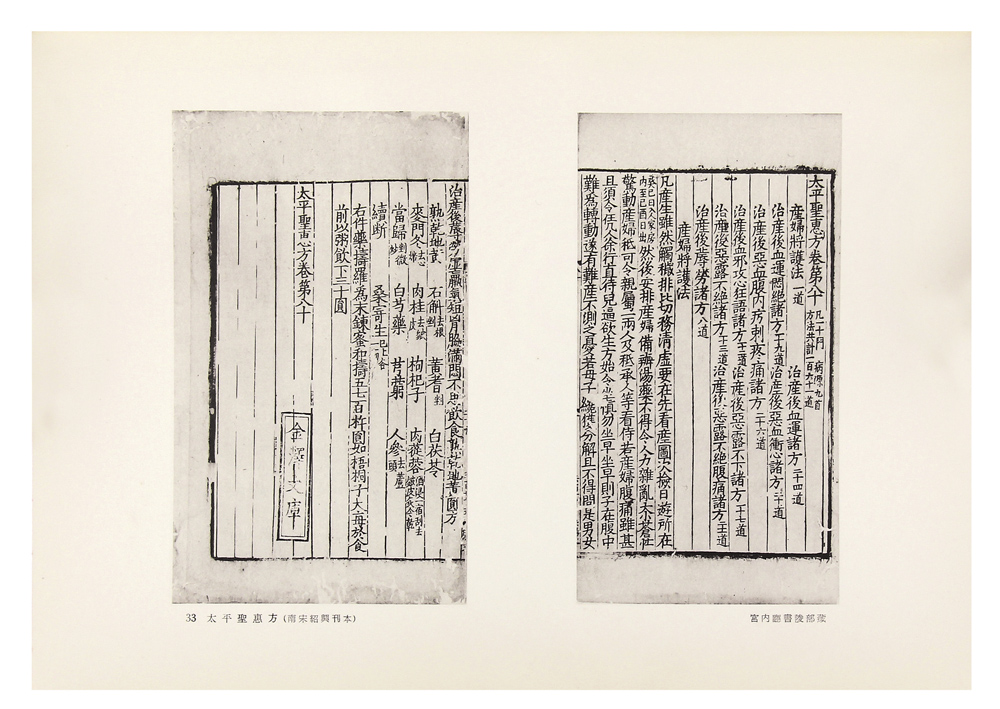 太平聖惠方卷第八十 凡二十門 病源九首 方法共計一百六十一道
產婦將護法一道 治產後血運諸方二十四道
治產後血運悶絕諸方十九道 治產後惡血衝心諸方二十道
治產後惡血腹內㽲刺疼痛諸方二十六道
治產後血邪攻心狂語諸方 治產後惡露不下諸方十七道
治產後惡露不絕諸方十三道 治產後惡露不絕腹痛諸方
治產後蓐勞諸方八道
產婦將護法
凡產生雖然觸穢排比切務清虛要在先看產圖次撿日遊所在
然後安排產婦備辦湯藥不得令人力雜亂大小蒼忙
驚動產婦秪可令親屬一兩人及秪承人等看侍若產婦腹痛雖甚
且須令任人徐行直待兒逼欲生方始令坐慎勿坐早坐早則子在腹中
難為轉動遂有難產不測之憂若母子分解且不得問是男女
治產後蓐勞虛羸氣短胷脇滿悶不思飲食熟乾地黃圓方
熟乾地黃 石斛去根剉 黃耆剉 白茯苓
麥門冬去心焙 肉桂去皴皮 枸杞子 肉蓯蓉
當歸剉微炒 白芍藥 芎藭 人參去蘆頭
續斷 桑寄生
右件藥擣羅為末鍊蜜和擣五七百杵圓如梧桐子大每於食
前以粥飲下三十圓
太平聖惠方卷第八十
金澤文庫
33 太平聖惠方(南宋紹興刊本)
宮内廳書陵部藏